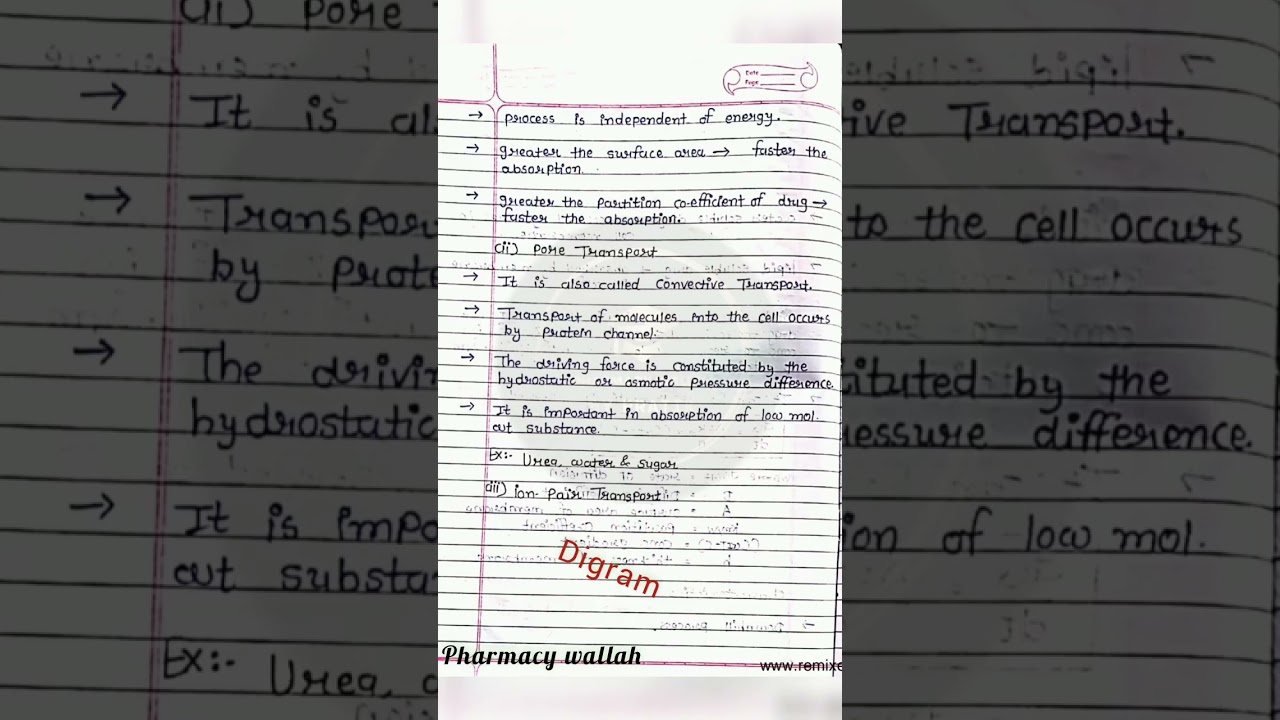 Date
Page
→ process is independent of energy.
→ greater the surface area → faster the
absorption.
→ greater the partition co-efficient of drug →
faster the absorption.
(ii) Pore Transport
→ It is also called Convective Transport.
→ Transport of molecules into the cell occurs
by protein channel.
→ The driving force is constituted by the
hydrostatic or osmotic pressure difference.
→ It is important in absorption of low mol.
wt substance.
Ex:- Urea, water & sugar
(iii) ion-Pair Transport
Digram
Pharmacy wallah
www.remixe